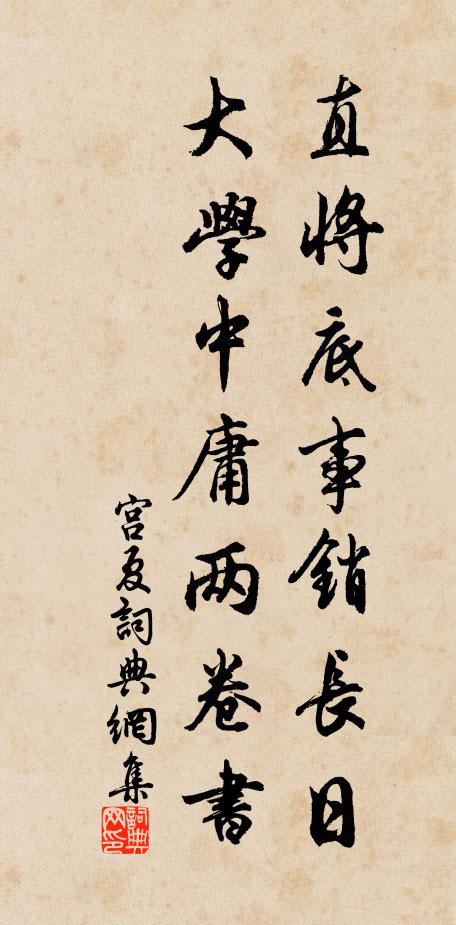 直將底事銷長日
大學中庸兩卷書
宫夏詞典網集
詞典网印